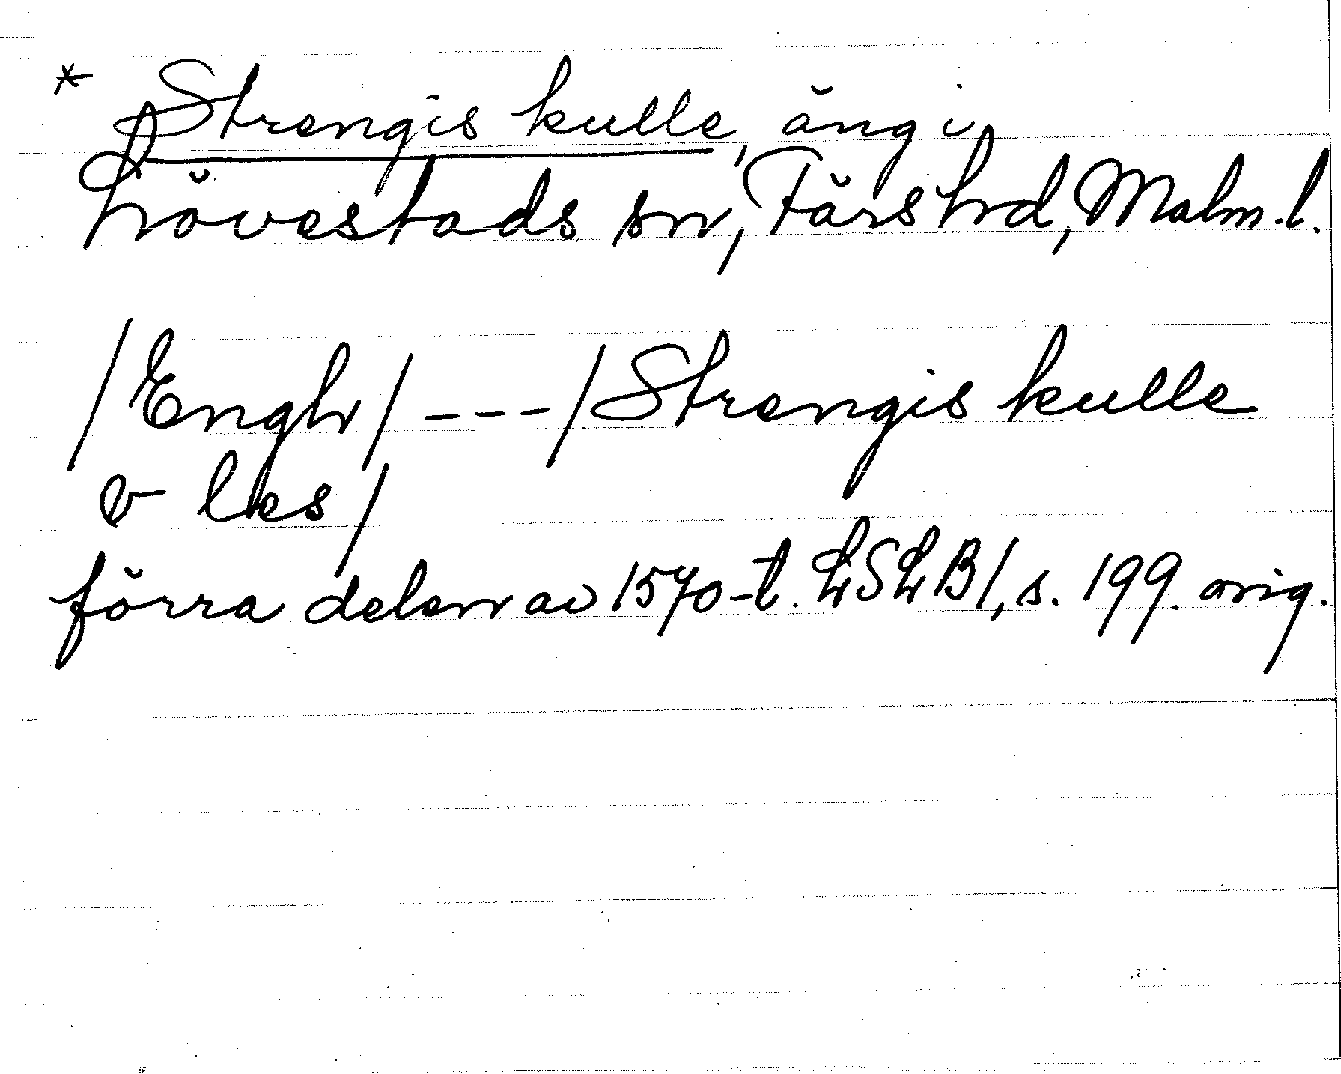 * Strengis kulle, äng i
Lövestads sn, Färs hd, Malm. l.
/Engh/ --- / Strengis kulle
o les /
förra delen av 1570-t. LSLB1, s. 199. orig.